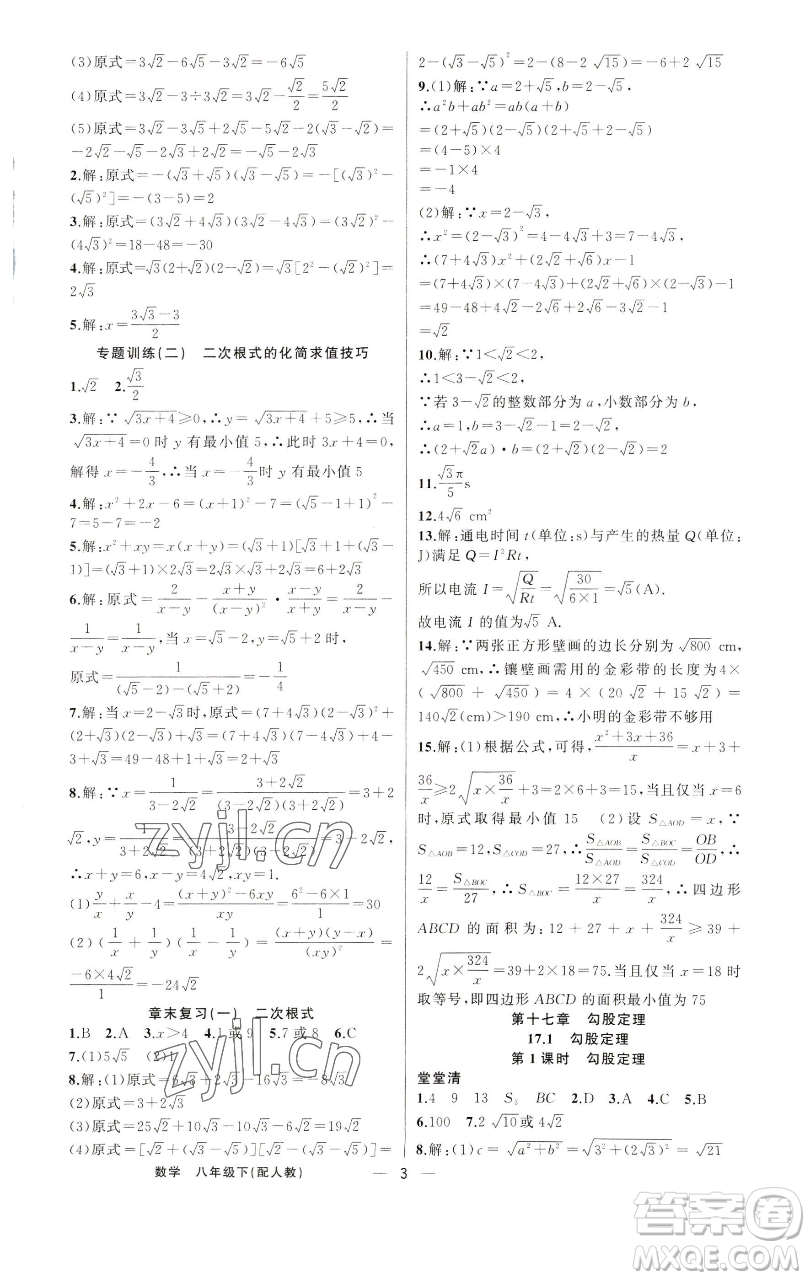 (3)原式=3√2-6√5-3√2=-6√5
(4)原式=3√2-3÷3√2=3√2-√2/2=5√2/2
(5)原式=3√2-3√5+2√5-5√2-(3√2-√5)=
-2√2-√5-3√2+√5=-5√2
2.解:原式=-(√3+√5)(√3-√5)=-[(√3)²-
(√5)²]=-(3-5)=2
3.解:原式=(3√2+4√3)(3√2-4√3)=(3√2)²-
(4√3)²=18-48=-30
4.解:原式=√3(2+√2)(2-√2)=√3[2²-(√2)²]=
2√3
5.解:x=(3√3-3)/2
专题训练(二) 二次根式的化简求值技巧
1.√2 2.√3/2
3.解:∵√(3x+4)≥0,∴y=√(3x+4)+5≥5,∴当
√(3x+4)=0时y有最小值5,∴此时3x+4=0,
解得x=-4/3,∴当x=-4/3时y有最小值5
4.解:x²+2x-6=(x+1)²-7=(√5-1+1)²-
7=5-7=-2
5.解:x²+xy=x(x+y)=(√3+1)[√3+1+(√3-
1)]=(√3+1)×2√3=2(√3)²+2√3=6+2√3
6.解:原式=2/(x-y)-(x+y)/(x-y)²·(x-y)/(x+y)=2/(x-y)-
1/(x-y)=1/(x-y),当x=√5-2,y=√5+2时,
原式=1/((√5-2)-(√5+2))=-1/4
7.解:当x=2-√3时,原式=(7+4√3)(2-√3)²+
(2+√3)(2-√3)+√3=(7+4√3)(7-4√3)+4-
3+√3=49-48+1+√3=2+√3
8.解:∵x=1/(3-2√2)=(3+2√2)/((3-2√2)(3+2√2))=3+2
√2,y=1/(3+2√2)=(3-2√2)/((3+2√2)(3-2√2))=3-2√2,
∴x+y=6,xy=1
(1)y/x+x/y-4=((x+y)²-6xy)/xy=(6²-6×1)/1=30
(2)(1/x+1/y)(1/x-1/y)=(x+y)(y-x)/(xy)²=
(-6×4√2)/1=-24√2
章末复习(一) 二次根式
1.B 2.A 3.x>4 4.1或9 5.7或8 6.C
7.(1)5√5 (2)1
8.解:(1)原式=6√3-2√3-16√3=-8√3
(2)原式=3+2√3
(3)原式=25√2+10√3-6√2=10√3+19√2
(4)原式=[√2+(√3-√5)][√2-(√3-√5)]=
2-(√3-√5)²=2-(8-2√15)=-6+2√15
9.(1)解:∵a=2+√5,b=2-√5,
∴a²b+ab²=ab(a+b)
=(2+√5)(2-√5)(2+√5+2-√5)
=(4-5)×4
=-1×4
=-4
(2)解:∵x=2-√3,
∴x²=(2-√3)²=4-4√3+3=7-4√3,
∴(7+4√3)x²+(2√2+√6)x-1
=(7+4√3)×(7-4√3)+(2√2+√6)×(2-√3)-1
=49-48+4√2-2√6+2√6-3√2-1
=√2
10.解:∵1<√2<2,
∴1<3-√2<2,
∵若3-√2的整数部分为a,小数部分为b,
∴a=1,b=3-√2-1=2-√2,
∴(2+√2a)·b=(2+√2)(2-√2)=2
11.√3π/5 s
12.4√6 cm²
13.解:通电时间t(单位:s)与产生的热量Q(单位:
J)满足Q=I²Rt,
所以电流I=√(Q/Rt)=√(30/(6×1))=√5(A).
故电流I的值为√5 A.
14.解:∵两张正方形壁画的边长分别为√800 cm,
√450 cm,∴镶壁画需用的金彩带的长度为4×
(√800+√450)=4×(20√2+15√2)=
140√2(cm)>190 cm,∴小明的金彩带不够用
15.解:(1)根据公式,可得,(x²+3x+36)/x=x+
36/x+3≥2√(x×36/x)+3=2×6+3=15,当且仅当x=6
时,原式取得最小值15 (2)设S△AOD=x,∵
S△AOB=12,S△COD=27,∴S△AOB/S△AOD=S△BOC/S△COD=OB/OD,∴
12/x=S△BOC/27,∴S△BOC=(12×27)/x=324/x,∴四边形
ABCD的面积为:12+27+x+324/x≥39+
2√(x×324/x)=39+2×18=75.当且仅当x=18时
取等号,即四边形ABCD的面积最小值为75
第十七章 勾股定理
17.1 勾股定理
第1课时 勾股定理
堂堂清
1.4 9 13 S BC 2.D 3.A 4.C 5.B
6.100 7.2√10或4√2
8.解:(1)c=√(a²+b²)=√(3²+(2√3)²)=√21
数学 八年级下(配人教) — 3 —
zyjl.cn
zyjl.cn
答案圈
MXQE.COM